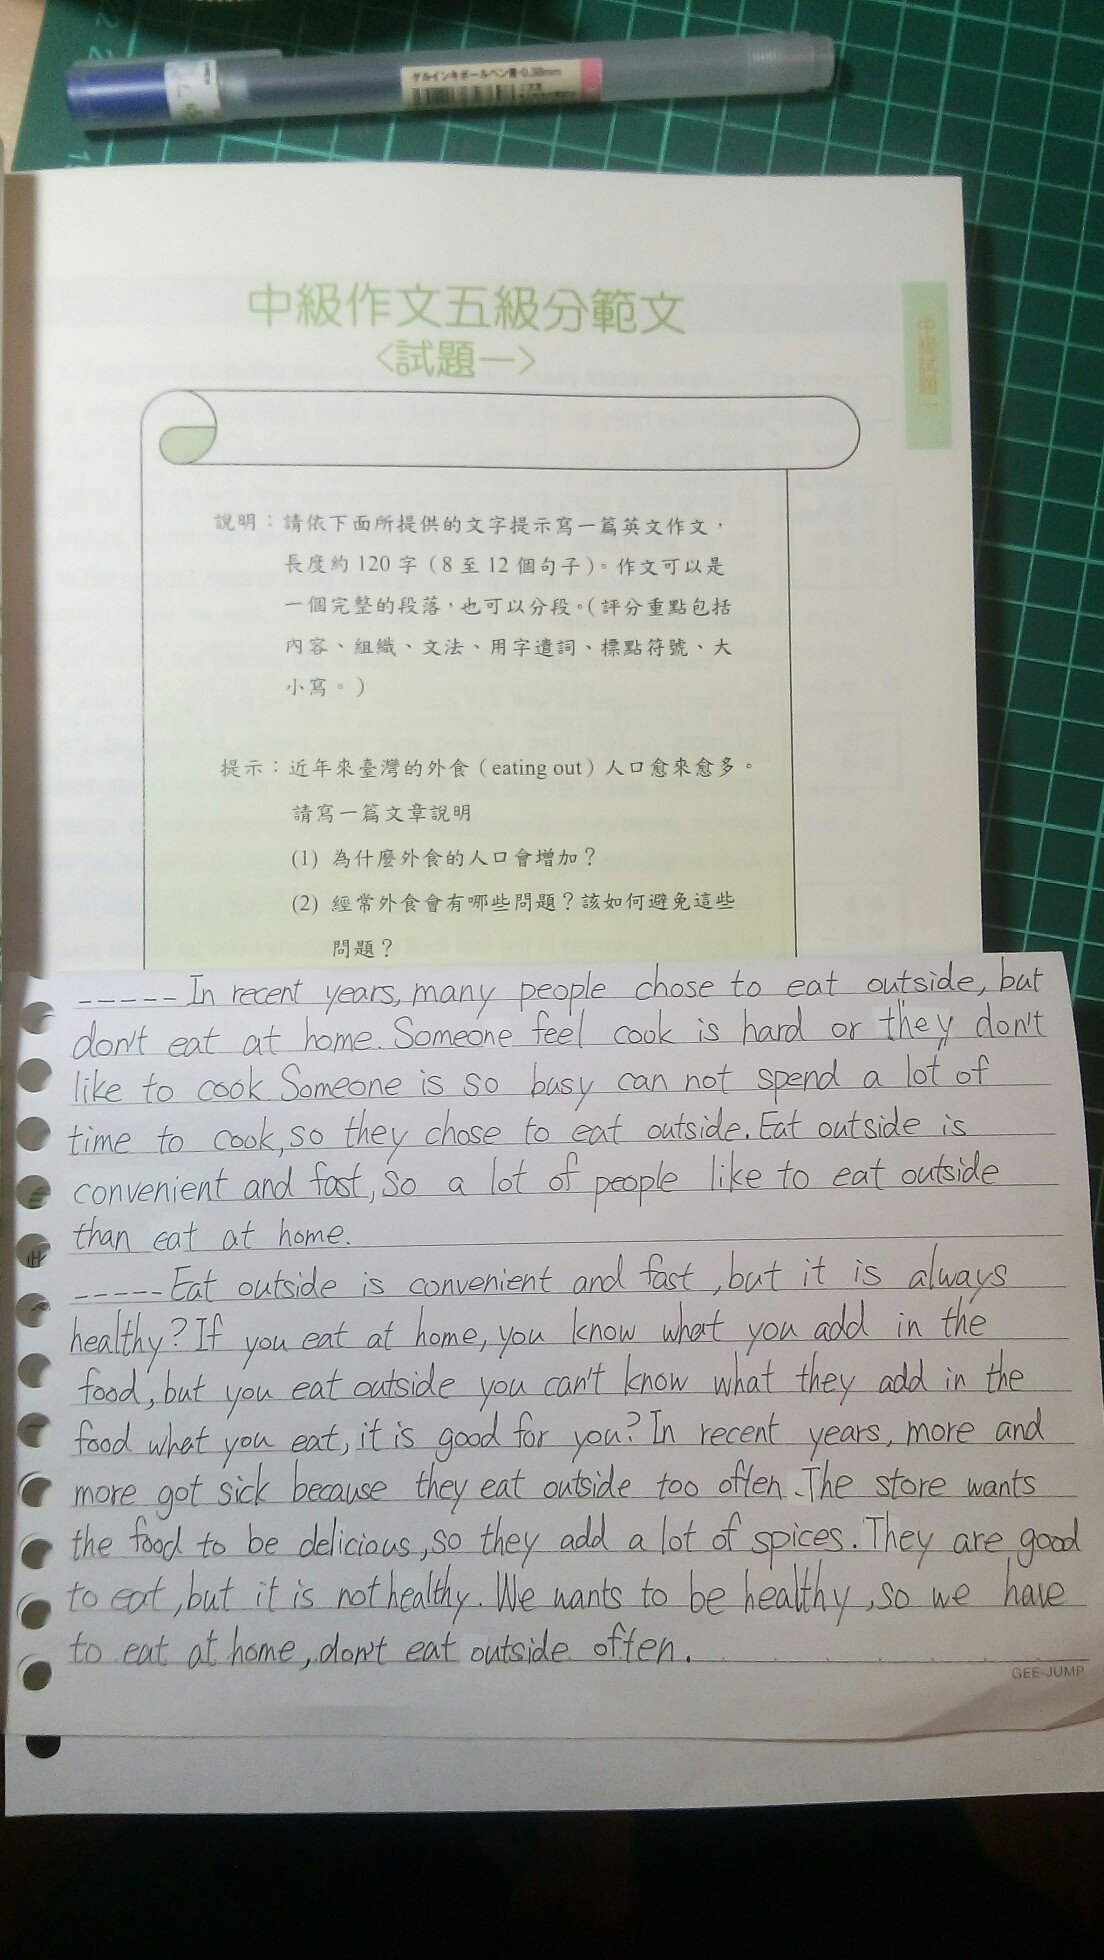 ゲルインキボールペン青・0.38mm
中級作文五級分範文
<試題一>
中級試題一
說明：請依下面所提供的文字提示寫一篇英文作文，
長度約120字（8至12個句子）。作文可以是
一個完整的段落，也可以分段。（評分重點包括
內容、組織、文法、用字遣詞、標點符號、大
小寫。）
提示：近年來臺灣的外食（eating out）人口愈來愈多。
請寫一篇文章說明
(1) 為什麼外食的人口會增加？
(2) 經常外食會有哪些問題？該如何避免這些
問題？
----- In recent years, many people chose to eat outside, but
don't eat at home. Someone feel cook is hard or they don't
like to cook Someone is so busy can not spend a lot of
time to cook, so they chose to eat outside. Eat outside is
convenient and fast, So a lot of people like to eat outside
than eat at home.
----- Eat outside is convenient and fast, but it is always
healthy? If you eat at home, you know what you add in the
food, but you eat outside you can't know what they add in the
food what you eat, it is good for you? In recent years, more and
more got sick because they eat outside too often. The store wants
the food to be delicious, so they add a lot of spices. They are good
to eat, but it is not healthy. We wants to be healthy, so we have
to eat at home, don't eat outside often.
GEE-JUMP